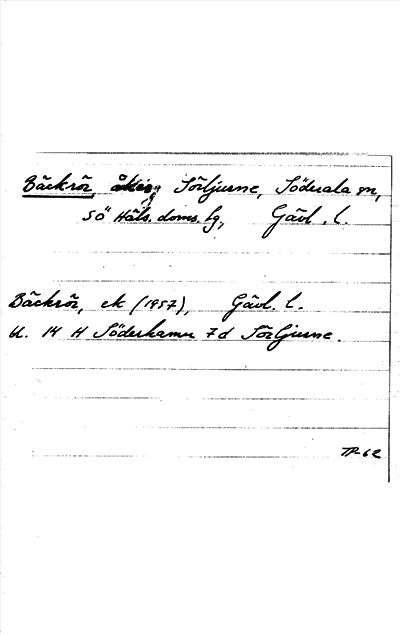 Bäckrör, åker, Sörljusne, Söderala sn,
SÖ Häls. doms. fg, Gävl. l.
Bäckrör, ek (1957), Gävl. l.
bl. 14 H Söderhamn 7d Sörljusne.
TP 62